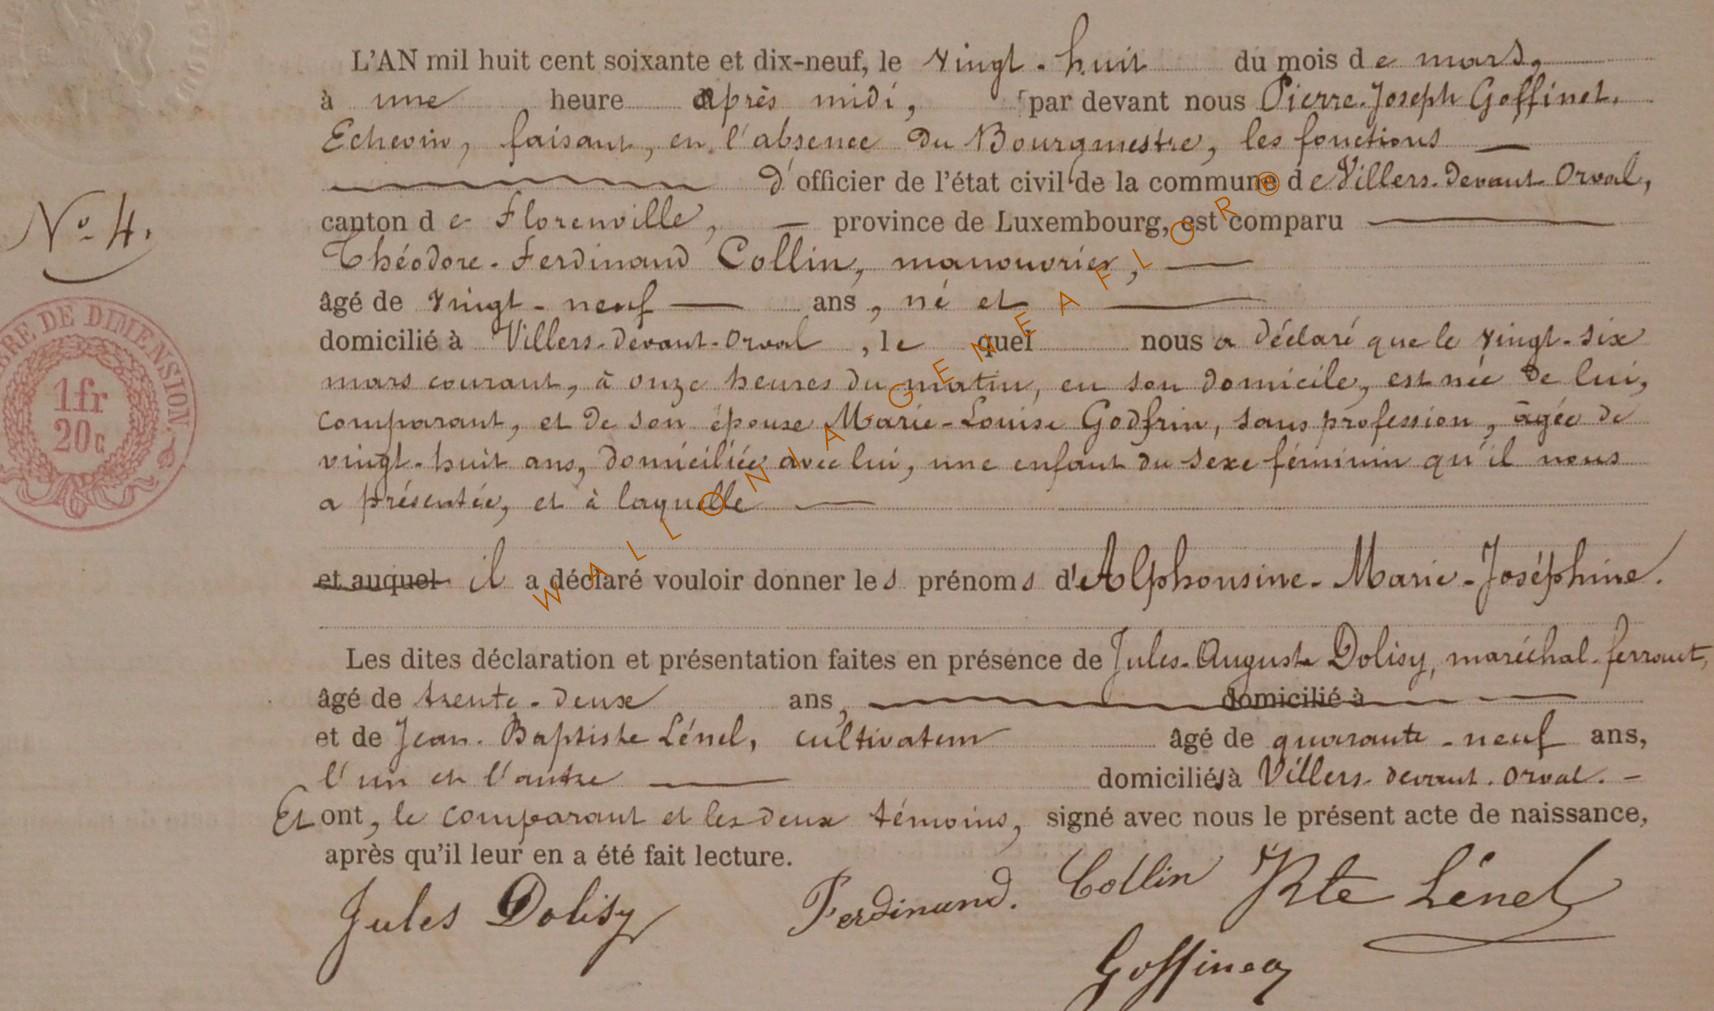 L'AN mil huit cent soixante et dix-neuf, le vingt-huit du mois de mars,
à une heure après midi, par devant nous Pierre-Joseph Goffinet,
Echevin, faisant, en l'absence du Bourgmestre, les fonctions
d'officier de l'état civil de la commune de Villers-devant-Orval,
canton de Florenville, province de Luxembourg, est comparu
Théodore-Ferdinand Collin, manouvrier,
âgé de vingt-neuf ans, né et
domicilié à Villers-devant-Orval, lequel nous a déclaré que le vingt-six
mars courant, à onze heures du matin, en son domicile, est née de lui,
comparant, et de son épouse Marie-Louise Godfrin, sans profession, âgée de
vingt-huit ans, domiciliée avec lui, une enfant du sexe féminin qu'il nous
a présentée, et à laquelle
et auquel il a déclaré vouloir donner les prénoms d'Alphonsine-Marie-Joséphine.
Les dites déclaration et présentation faites en présence de Jules-Auguste Dolisy, maréchal-ferrant,
âgé de trente-deux ans, domicilié à
et de Jean-Baptiste Lénel, cultivateur âgé de quarante-neuf ans,
l'un et l'autre domiciliés à Villers-devant-Orval.
Et ont, le comparant et les deux témoins, signé avec nous le présent acte de naissance,
après qu'il leur en a été fait lecture.
Jules Dolisy Ferdinand. Collin Bte Lénel
Goffinet
No 4.
TIMBRE DE DIMENSION
1fr
20c
WALLONIA GENEAFLOR®